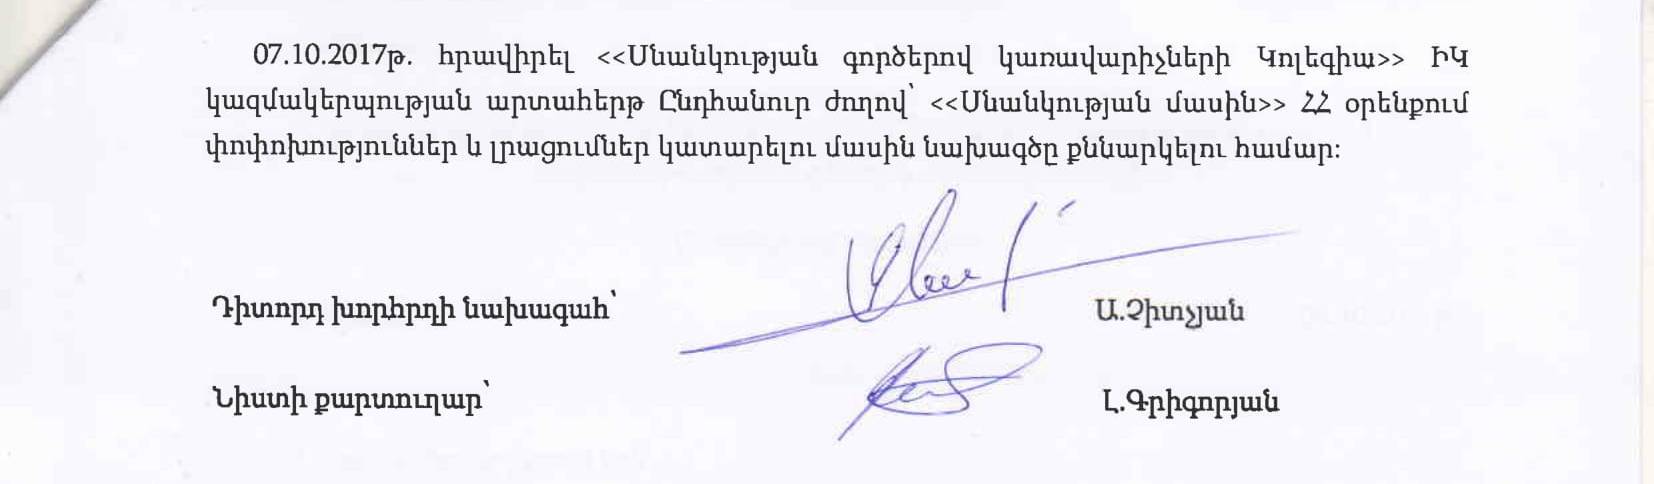 07.10.2017թ. հրավիրել <<Սնանկության գործերով կառավարիչների Կոլեգիա>> ԻԿ
կազմակերպության արտահերթ Ընդհանուր ժողով՝ <<Սնանկության մասին>> ՀՀ օրենքում
փոփոխություններ և լրացումներ կատարելու մասին նախագծը քննարկելու համար:
Դիտորդ խորհրդի նախագահ՝ Ա.Չիտչյան
Նիստի քարտուղար՝ Լ.Գրիգորյան